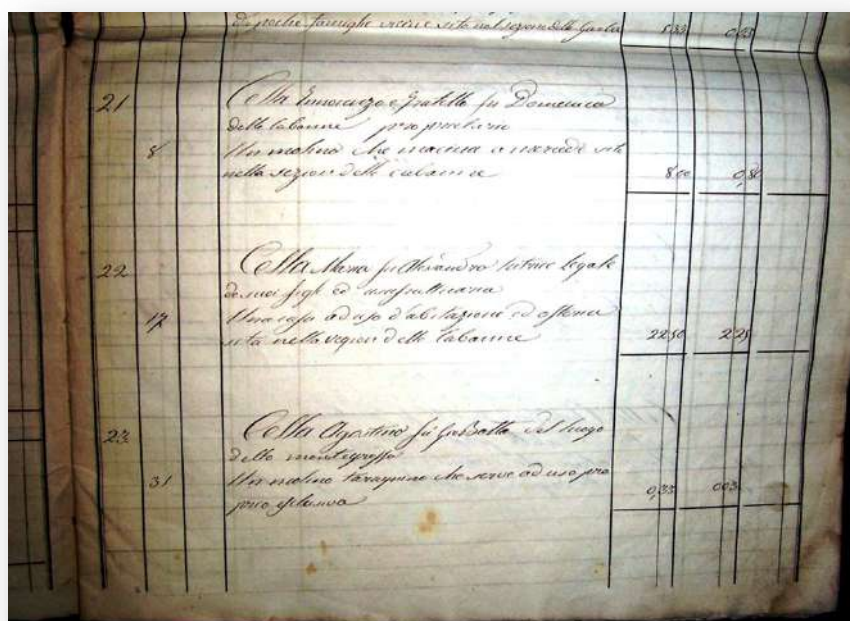 di poche famiglie vicine sita nel regione delle 5,33 0,53
21 Cella Innocenzo e fratello fu Domenico
delle Cabanne proprietario
8 Un molino che macina a mercede sito
nella regione delle cabanne 8,00 0,80
22 Cella Maria fu Alessandro tutrice legale
de suoi figli ed usufruttuaria
17 Una casa ad uso d'abitazione ed osteria
sita nella region delle Cabanne 22,50 2,25
23 Cella Agostino fu GioBatta del luogo
delle
31 Un molino che serve ad uso pro
prio esclusivo 0,33 003